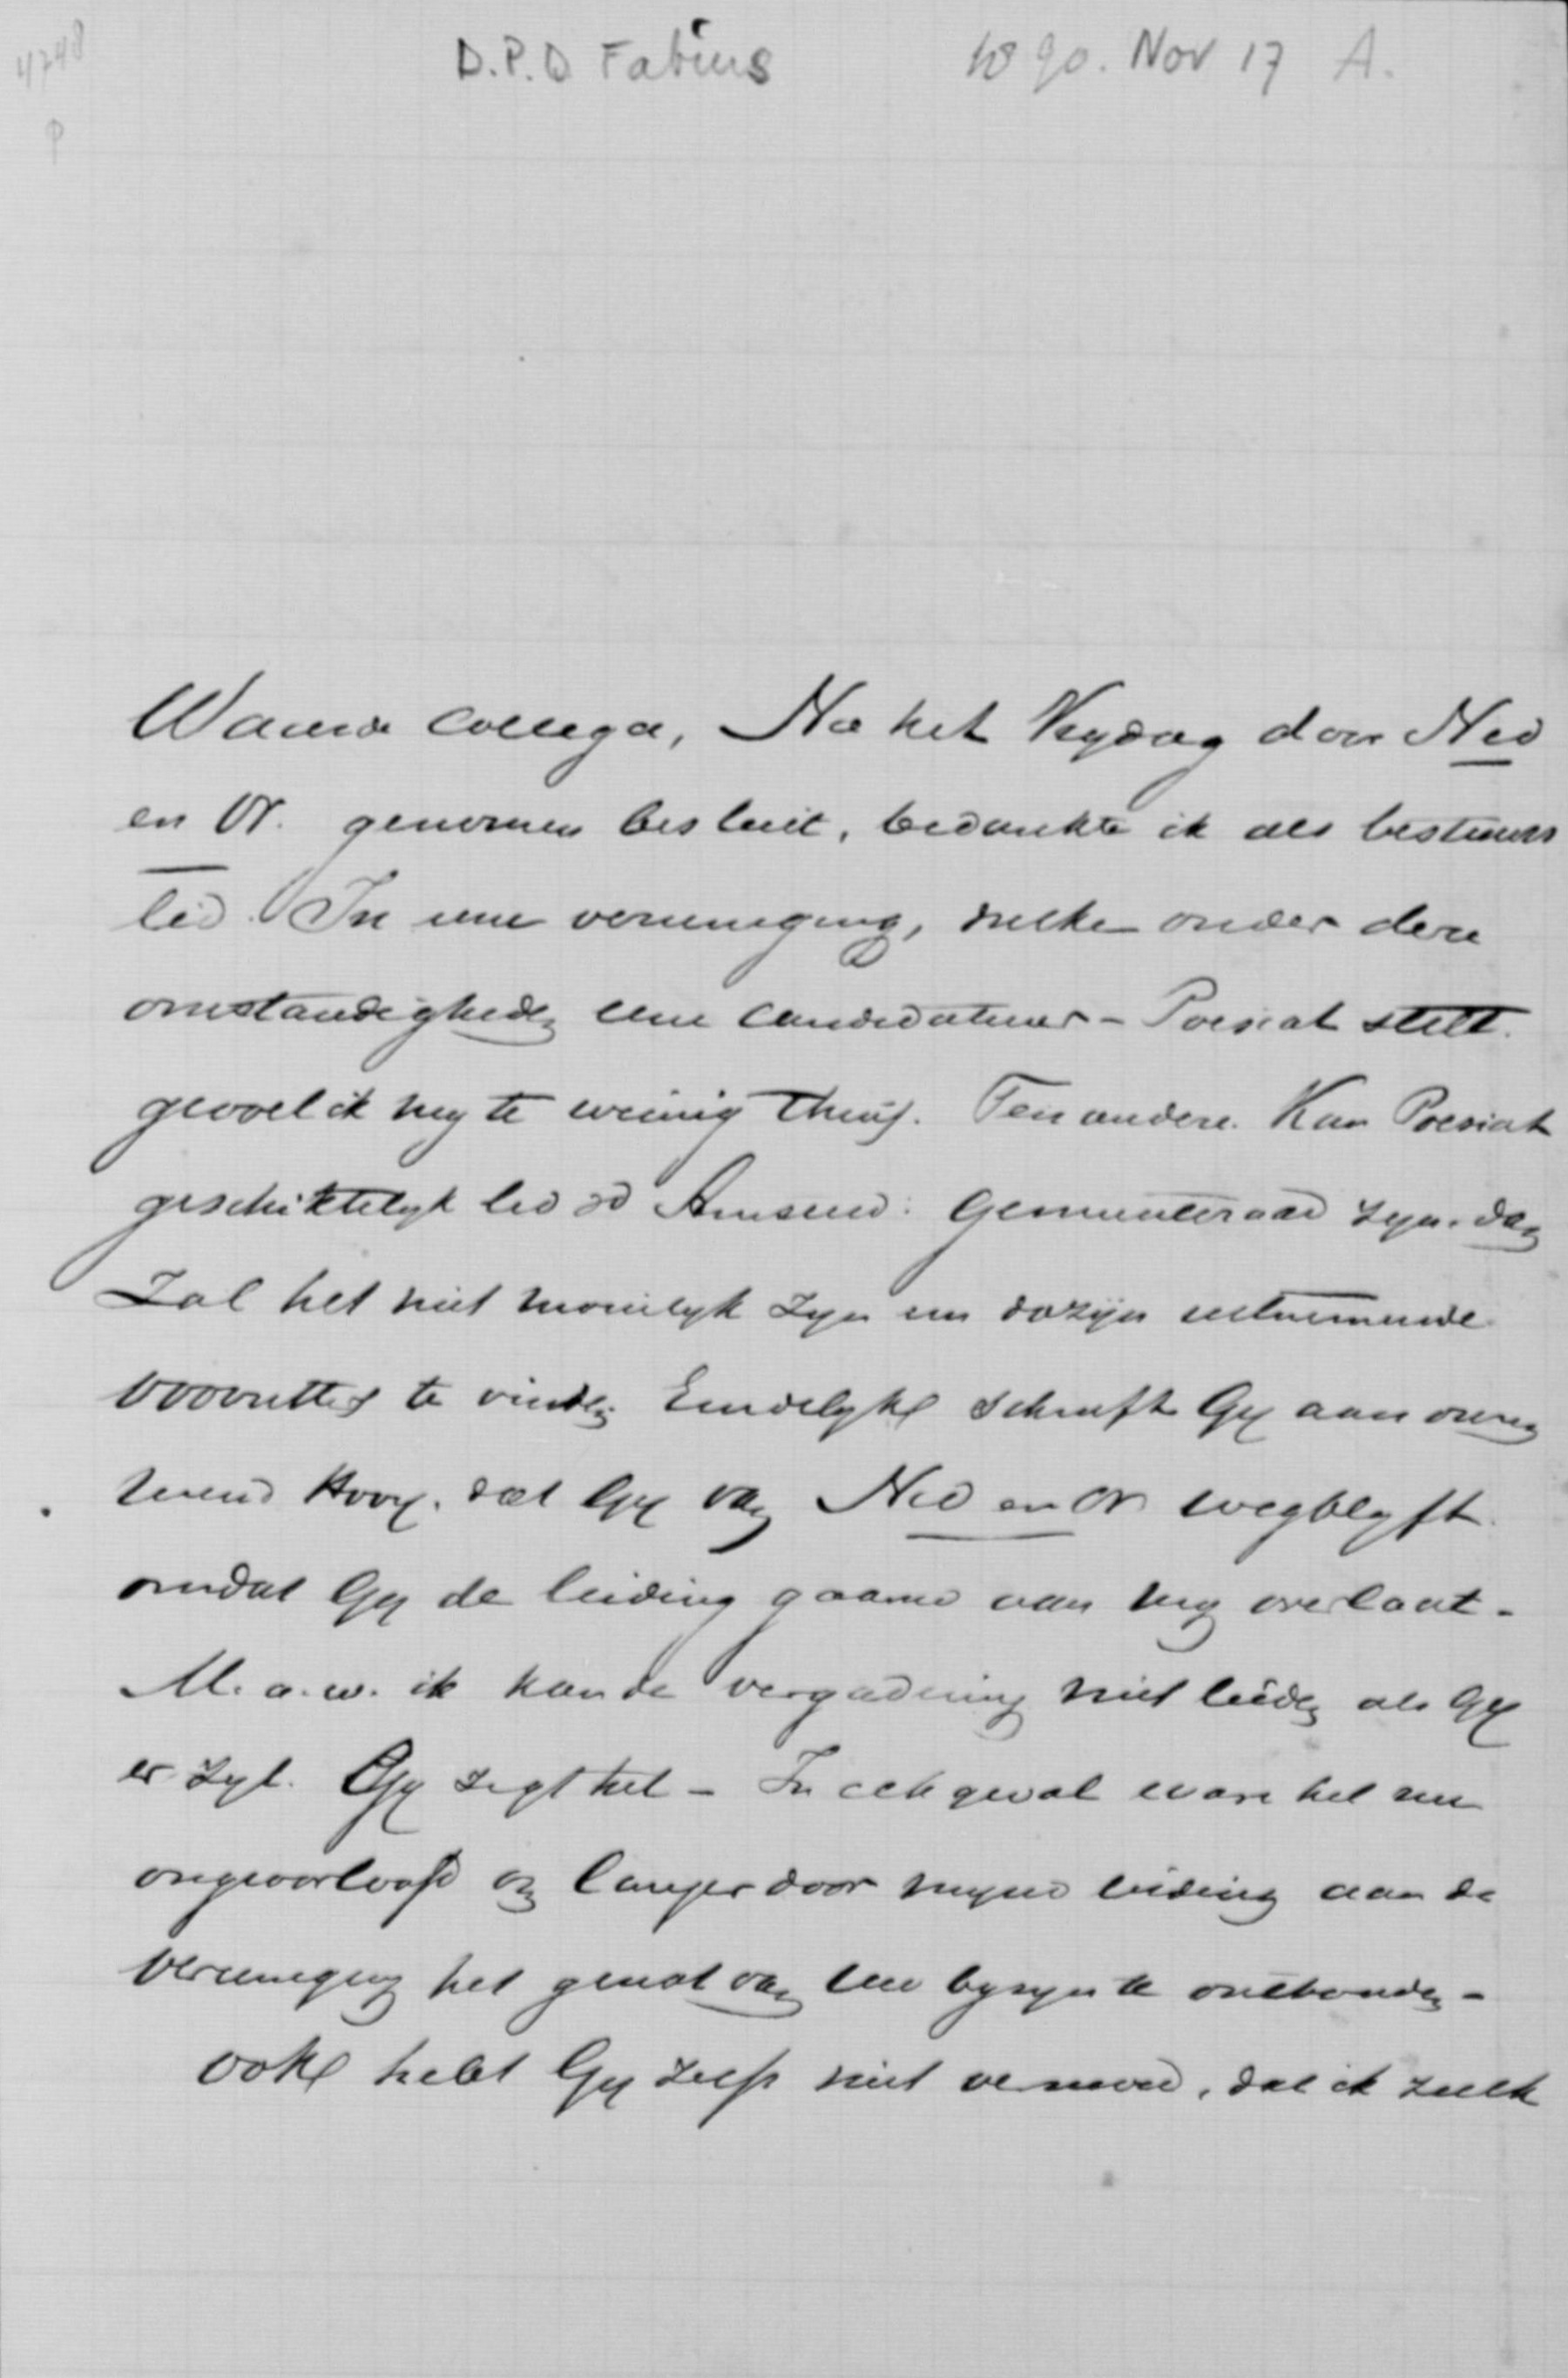 4748
D.P.D Fabius 1890. Nov 17 A.
Waarde Collega, Na het Vrydag door Ned
en Or. genomen besluit, bedankte ik als bestuurs
lid. In eene vereeniging, welke onder deze
omstandigheden eene candidatuur - Poesiat stelt.
gevoel ik my te weinig thuis. Ten andere. Kan Poesiat
geschiktelyk lid vd Amsterd: Gemeenteraad zyn. dan
zal het niet moeilyk zyn een dozyn uitnemende
te vinden. Eindelyk schreeft Gy aan onzen
vriend Hovy. dat Gy van Ned en Or wegblyft.
omdat Gy de leiding gaarne aan my overlaat -
M.a.w. ik kan de vergadering niet leiden als Gy
er zyt. Gy zegt het - In elk geval ware het nu
ongeoorloofd om langer door myne leiding aan de
vereeniging het genot van Uw byzyn te onthouden -
ook hebt Gy zelfs niet vermoed, dat ik zulk